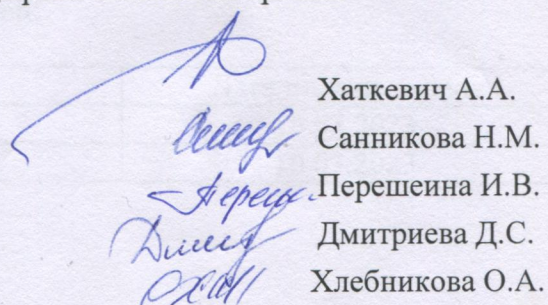 Хаткевич А.А.
Санникова Н.М.
Перешеина И.В.
Дмитриева Д.С.
Хлебникова О.А.